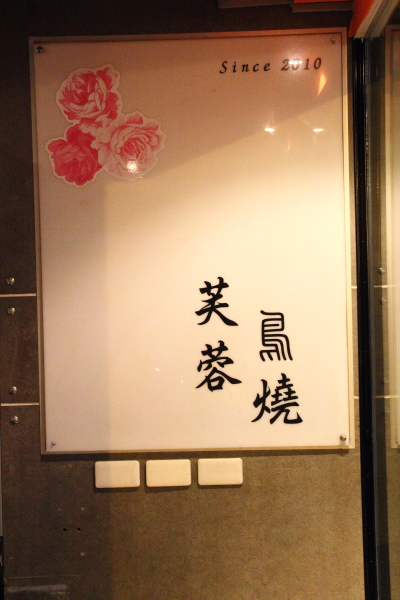 Since 2010
鳥燒
芙蓉